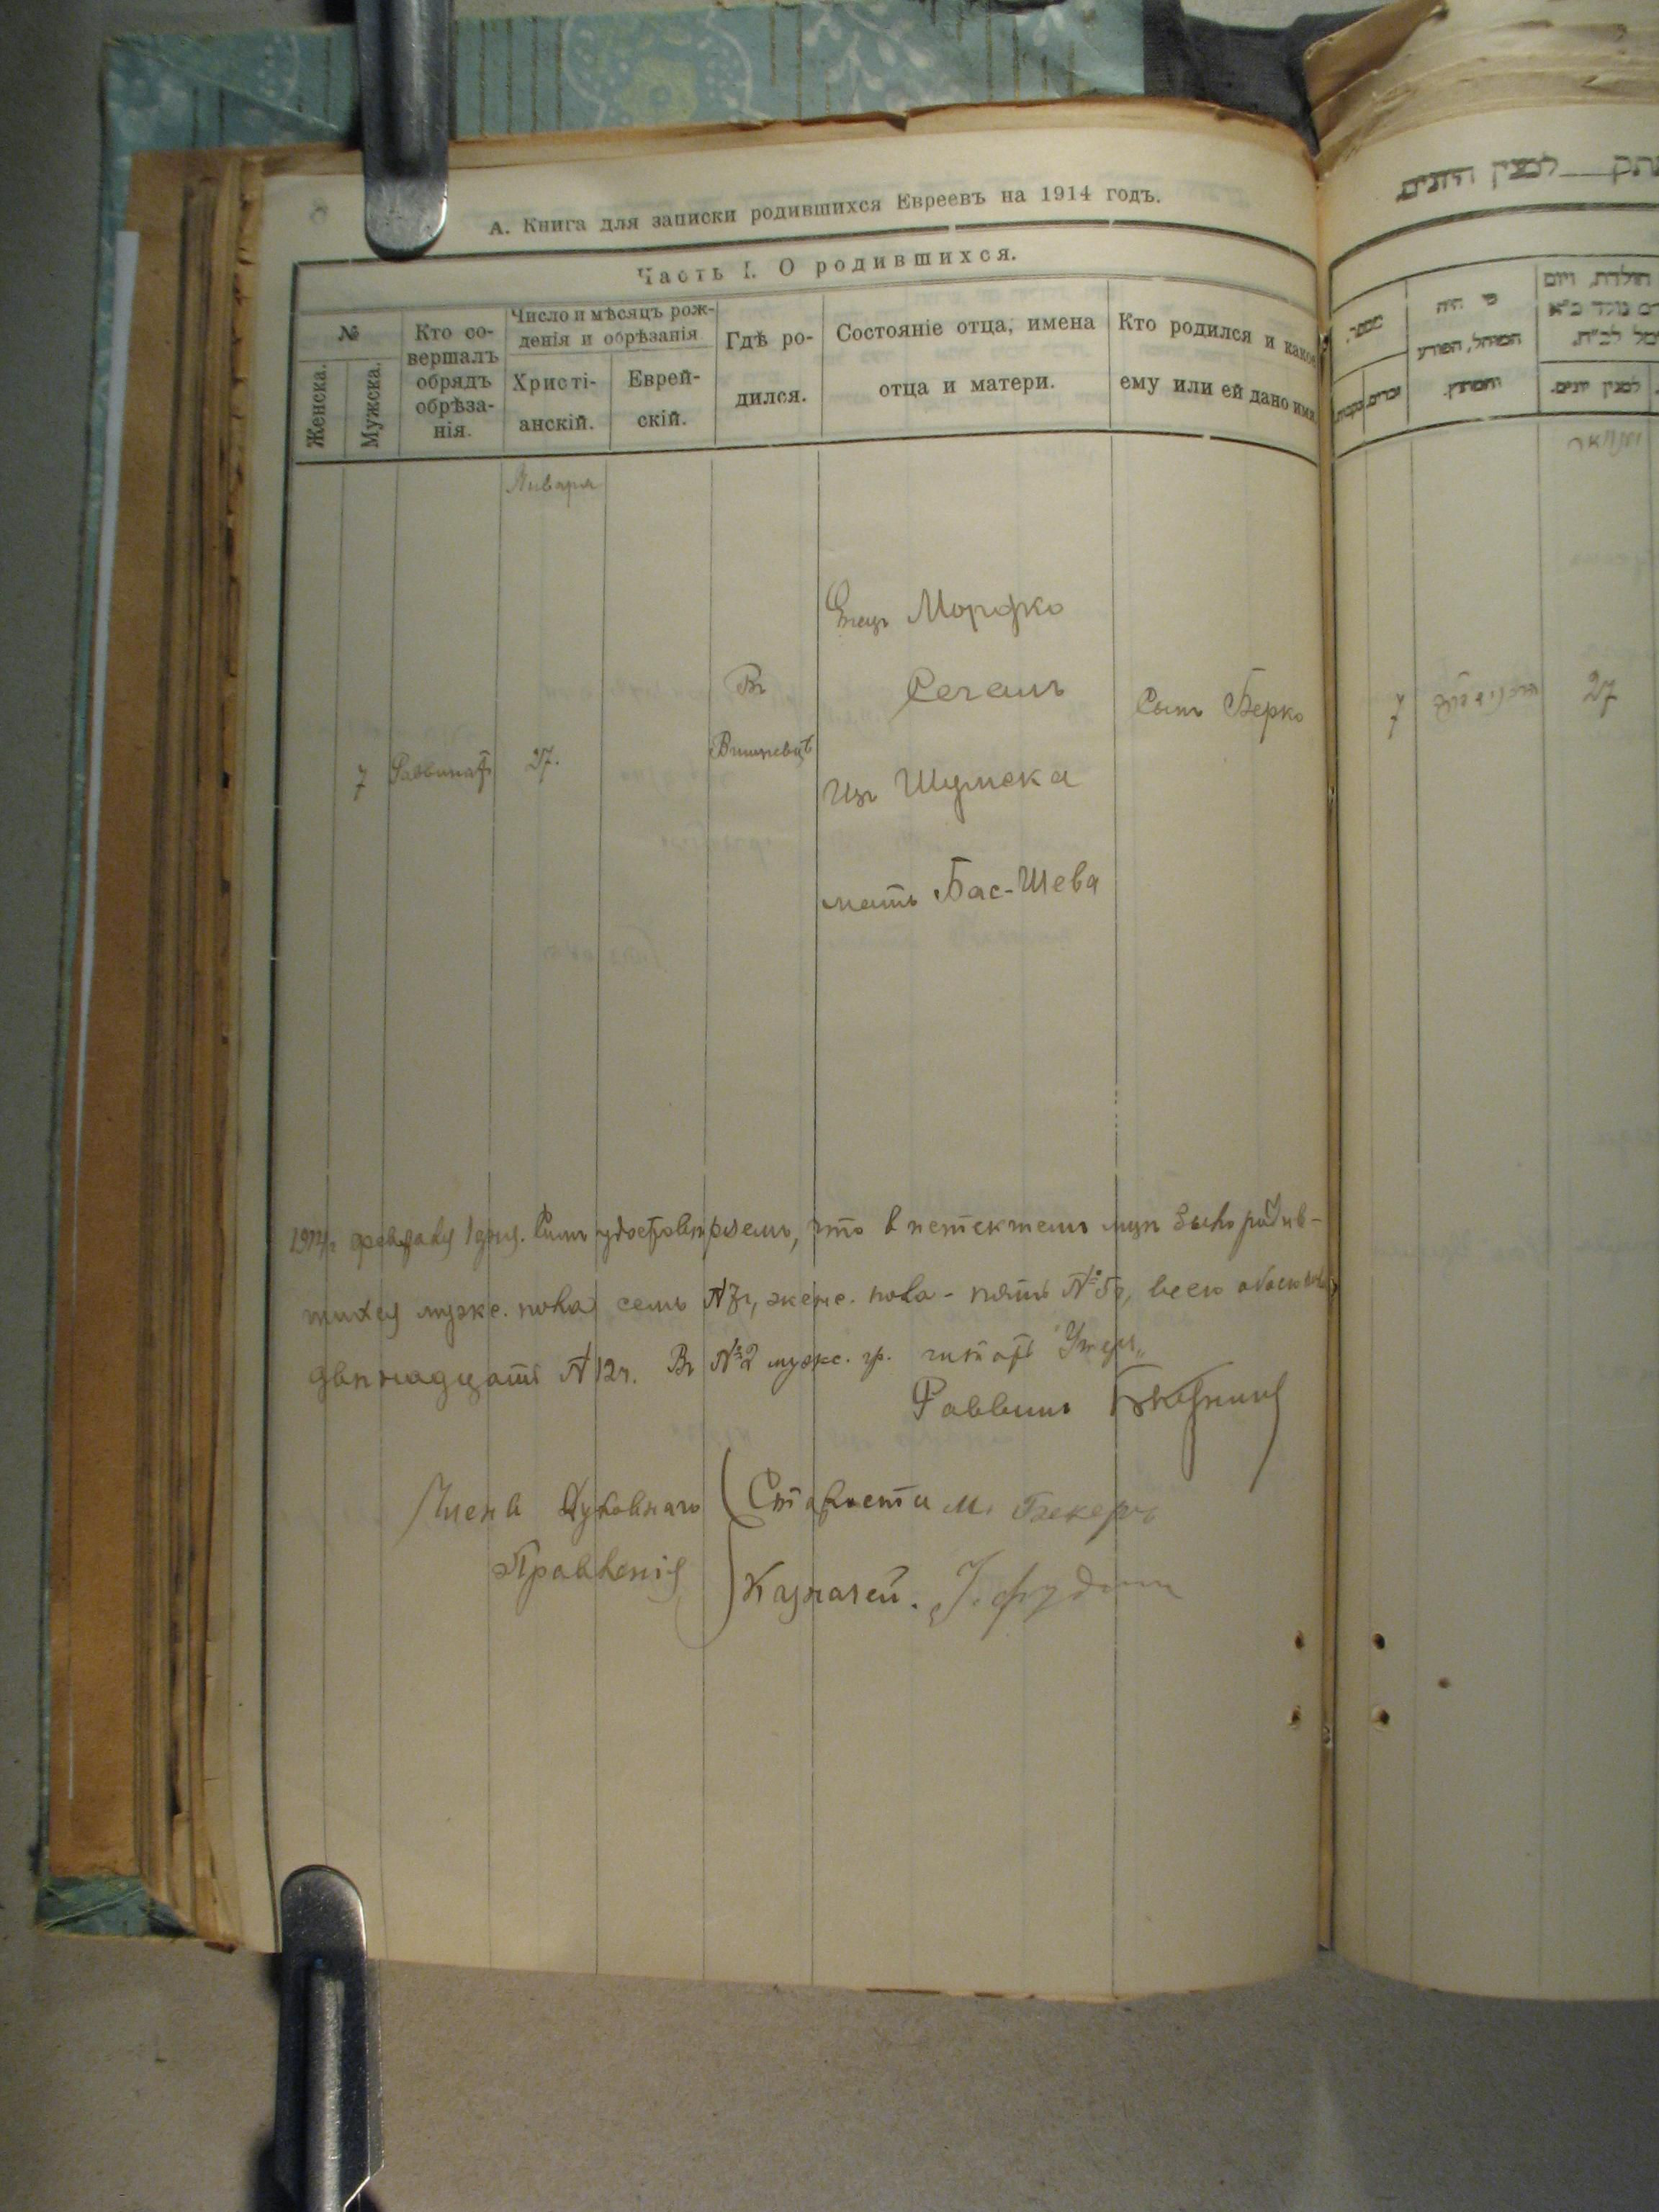 А. Книга для записки родившихся Евреевъ на 1914 годъ.
Часть I. О родившихся.
№
Женска.
Мужска.
Кто со-
вершалъ
обрядъ
обрѣза-
нія.
Число и мѣсяцъ рож-
денія и обрѣзанія
Христі-
анскій.
Еврей-
скій.
Гдѣ ро-
дился.
Состояніе отца, имена
отца и матери.
Кто родился и какое
ему или ей дано имя
Января
7
27.
Въ
Вишневцѣ
Отецъ Мордко
Сегалъ
Изъ Шумска
мать Бас-Шева
Сынъ Берко
1914 г. февраля 1 дня. Симъ удостовѣряемъ, что в истекшем мцѣ было родив-
шихся мужс. пола семь № 7ч, женс. пола - пять № 5ч, всего обоего пола
двѣнадцать № 12ч. Въ № 2 мужс. гр. читать
Раввинъ
Члены Духовнаго
Правленія
Старости М. Бекеръ
Казначей.
למצין היונים
מספר,
זכרים
נקבות
מי היה
המוהל, הפורע
והמוצץ.
הולדת, ויום
למצין יונים.
ינואר
7
27